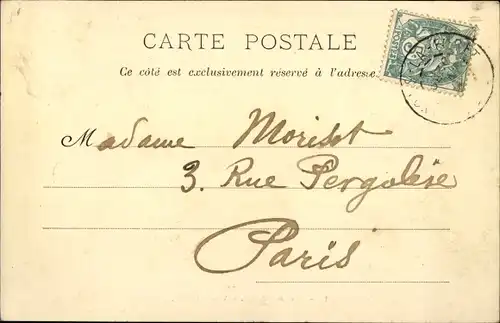 CARTE POSTALE
Ce côté est exclusivement réservé à l'adresse.
Madame Morisot
3. Rue Pergolèse
Paris